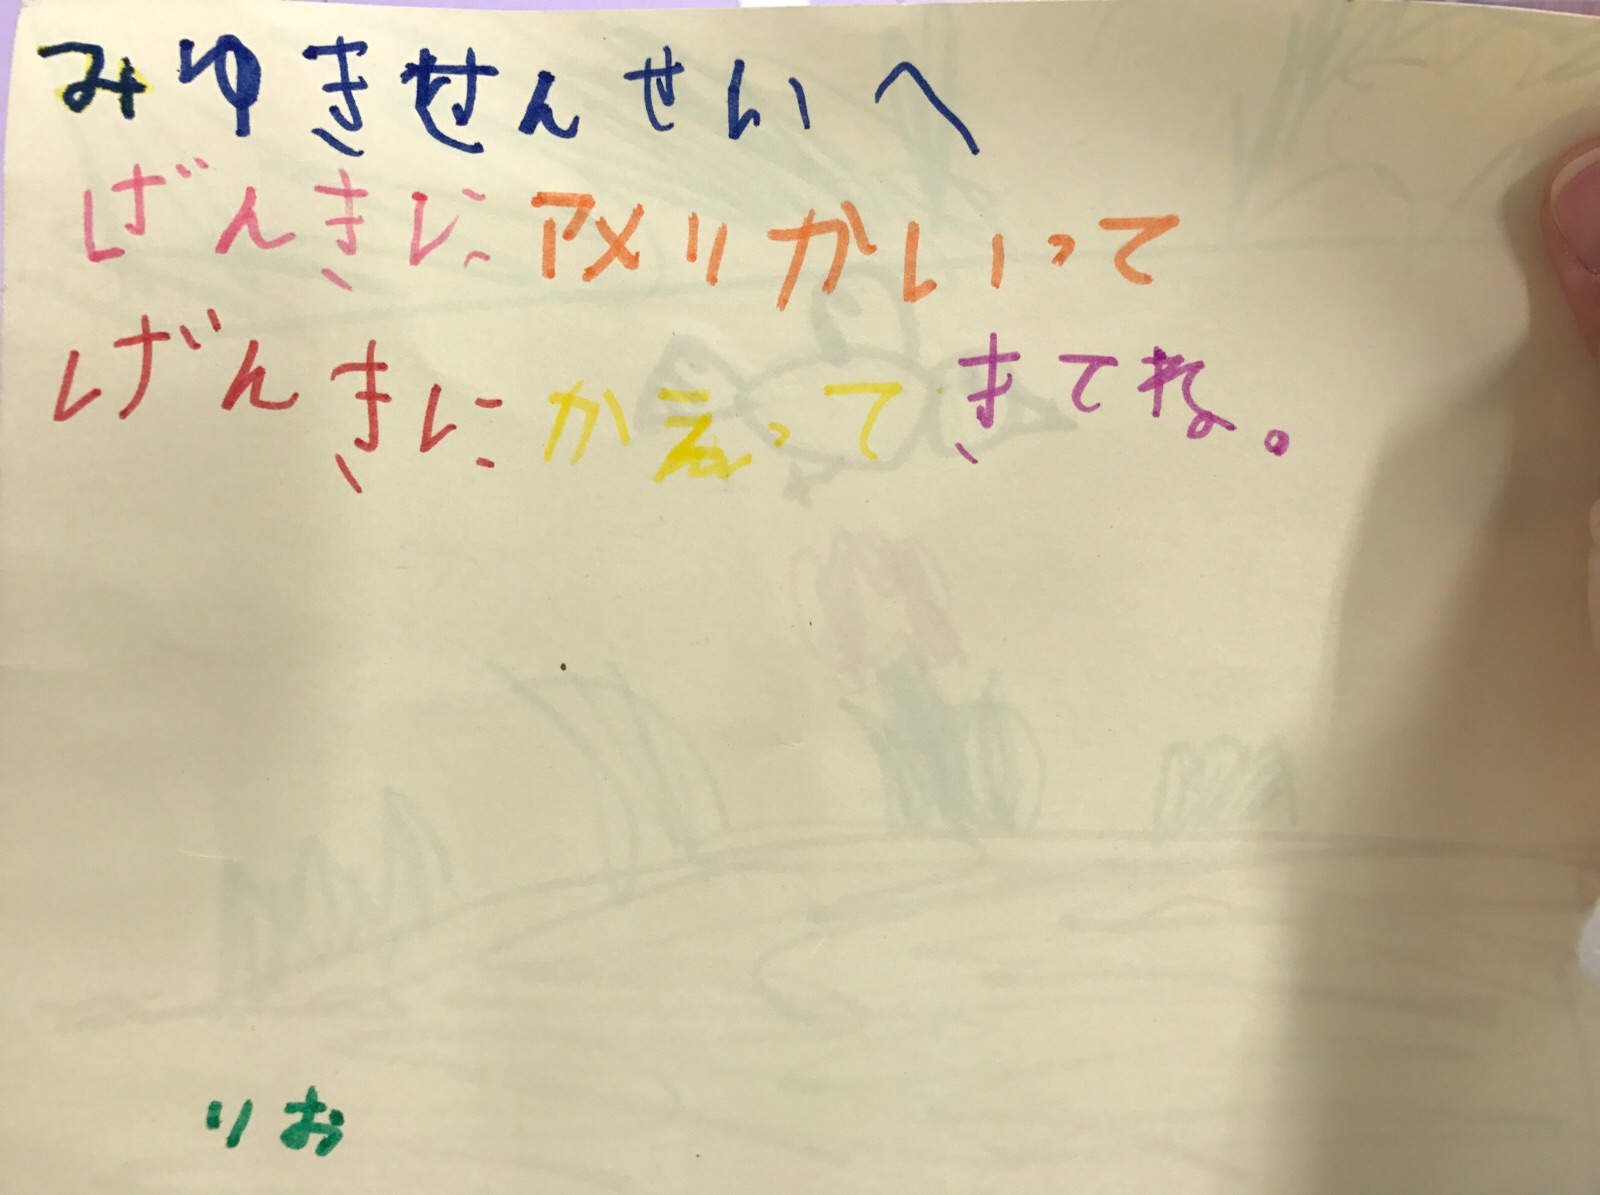 みゆきせんせいへ
げんきにアメリかいって
げんきにかえってきてね。
りお